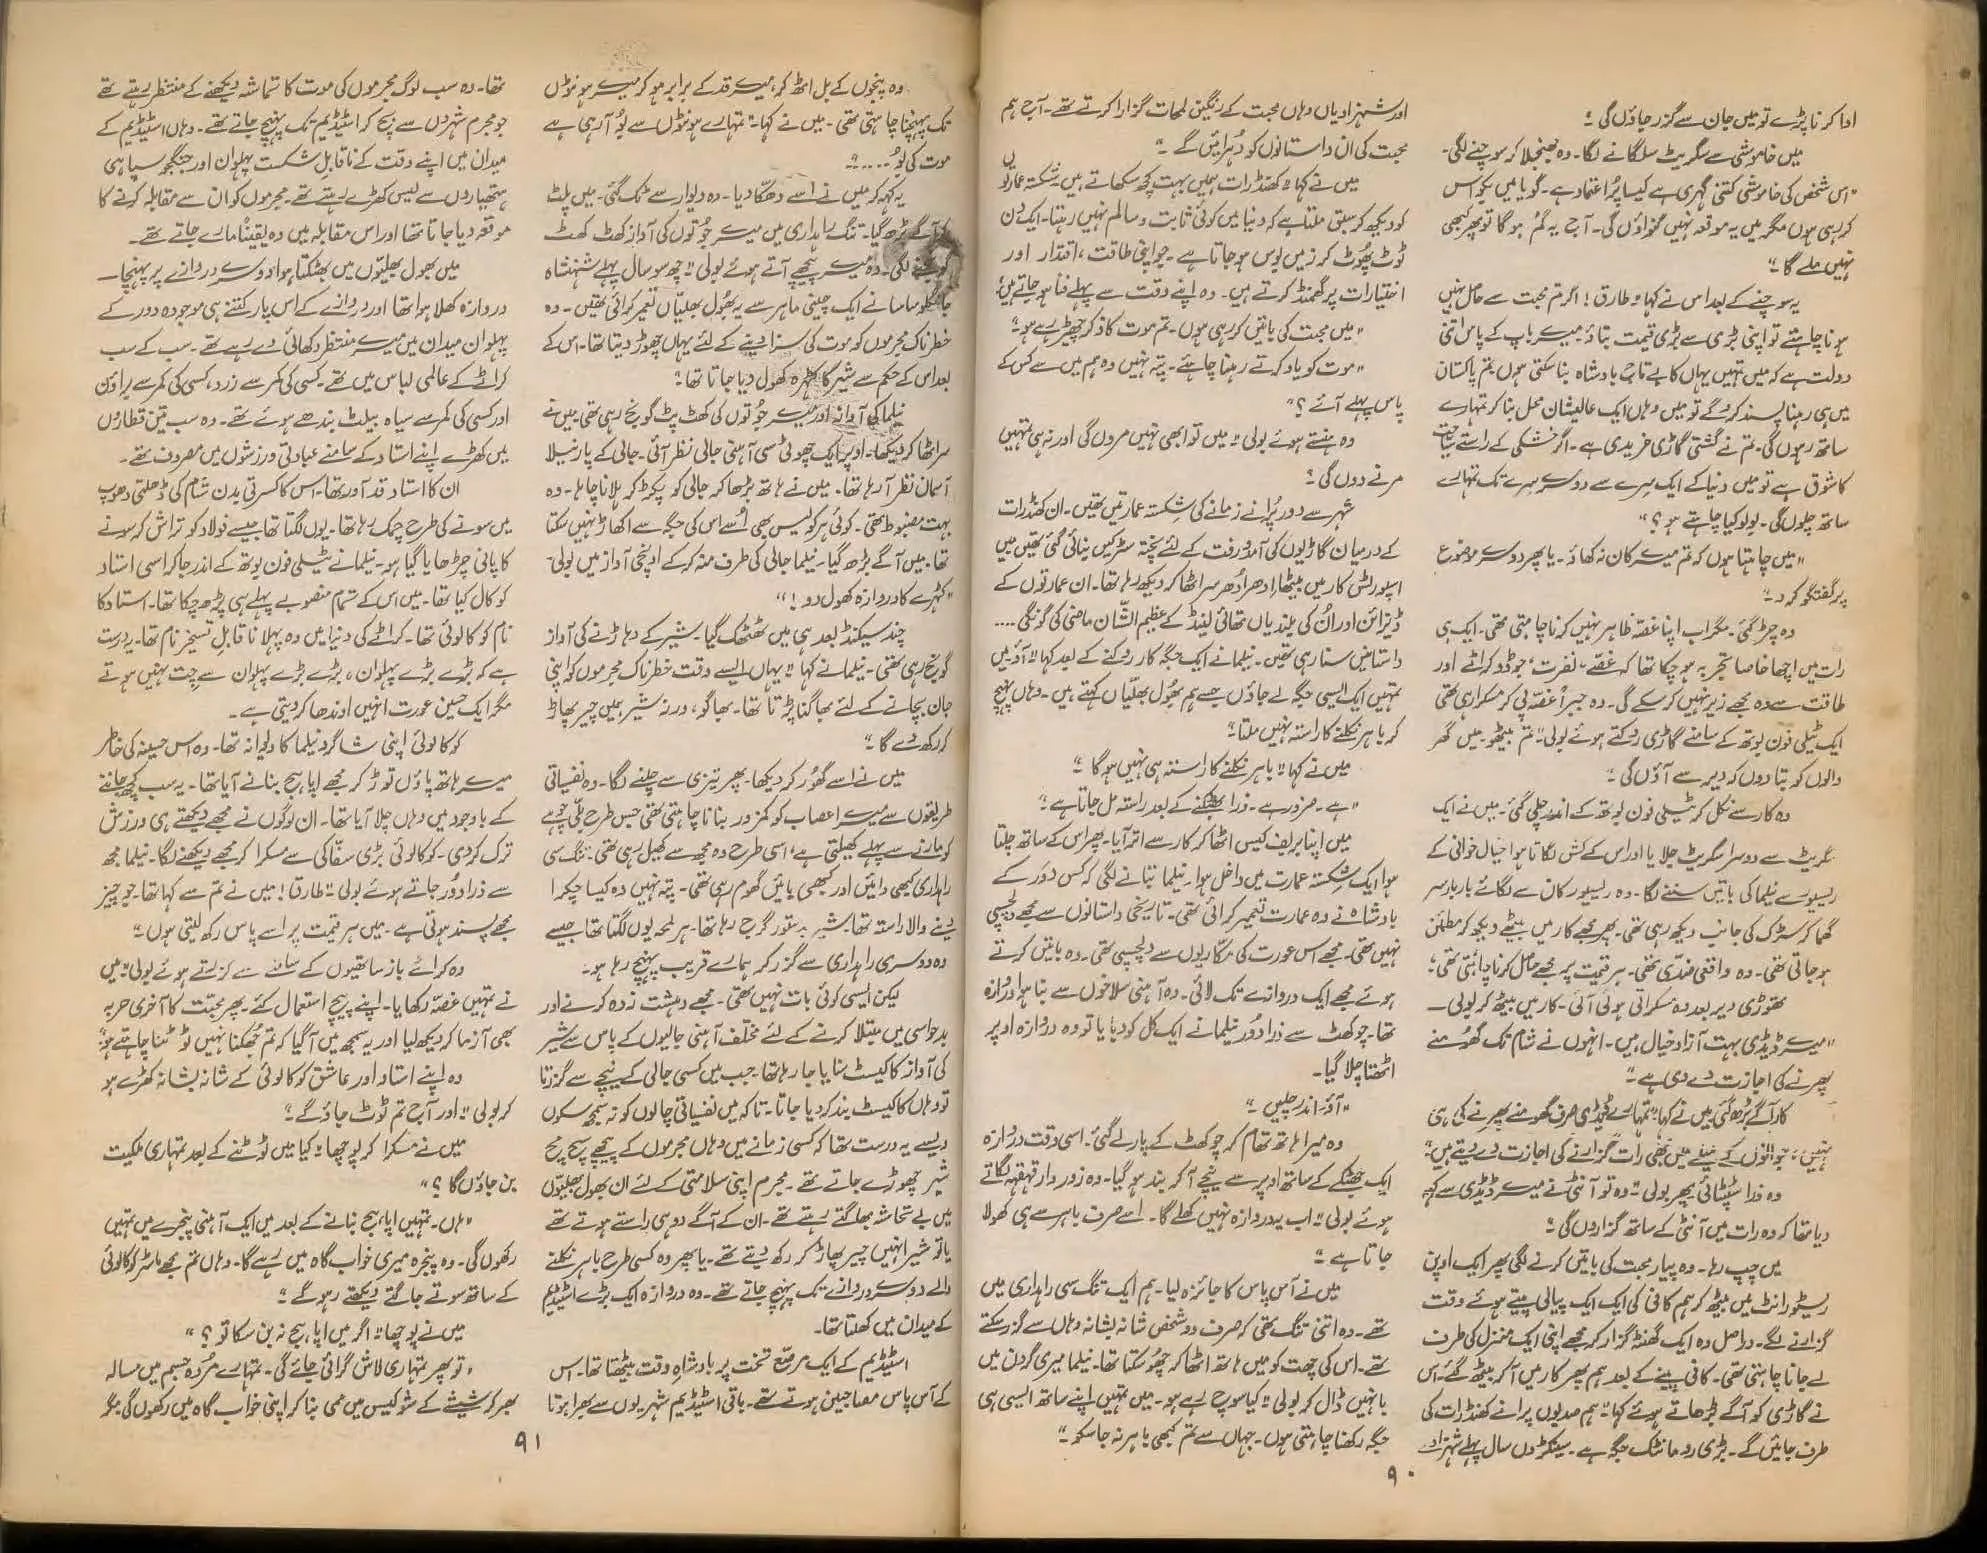 ادا کرنا پڑے تو میں جان سے گزر جاؤں گی؟
میں خاموشی سے سگریٹ سلگانے لگا۔ وہ جھنجلا کر سوچنے لگی۔
"اس شخص کی خاموشی کتنی گہری ہے کیسا پُر اعتماد ہے۔ گویا میں بکواس
کر رہی ہوں مگر میں یہ موقعہ نہیں گنواؤں گی۔ آج یہ گُم ہو گا تو پھر کبھی
نہیں ملے گا۔"
یہ سوچنے کے بعد اس نے کہا "طارق! اگر تم محبت سے حاصل نہیں
ہونا چاہتے تو اپنی بڑی سے بڑی قیمت بتاؤ۔ میرے باپ کے پاس اتنی
دولت ہے کہ میں تمہیں یہاں کا بے تاج بادشاہ بنا سکتی ہوں تم پاکستان
میں ہی رہنا پسند کرو گے تو میں وہاں ایک عالیشان محل بنا کر تمہارے
ساتھ رہوں گی۔ تم نے گشتی گاڑی خریدی ہے۔ اگر خشکی کے راستے سیاحت
کا شوق ہے تو میں دنیا کے ایک سرے سے دوسرے سرے تک تمہارے
ساتھ چلوں گی۔ بولو کیا چاہتے ہو؟"
"میں چاہتا ہوں کہ تم میرے کان نہ کھاؤ۔ یا پھر دوسرے موضوع
پر گفتگو کرو۔"
وہ چڑ گئی۔ مگر اب اپنا غصّہ ظاہر نہیں کرنا چاہتی تھی۔ ایک ہی
رات میں اچھا خاصا تجربہ ہو چکا تھا کہ غصّے، نفرت، جوڈو کراٹے اور
طاقت سے وہ مجھے زیر نہیں کر سکے گی۔ وہ جبراً غصّہ پی کر مسکرا رہی تھی
ایک ٹیلی فون بوتھ کے سامنے گاڑی روکتے ہوئے بولی "تم بیٹھو۔ میں گھر
والوں کو بتا دوں کہ دیر سے آؤں گی۔"
وہ کار سے نکل کر ٹیلی فون بوتھ کے اندر چلی گئی۔ میں نے ایک
سگریٹ سے دوسرا سگریٹ جلایا اور اس کے کش لگاتا ہوا خیال خوانی کے
ذریعے نیلما کی باتیں سننے لگا۔ وہ ریسیور کان سے لگائے بار بار سر
گھما کر سڑک کی جانب دیکھ رہی تھی۔ پھر مجھے کار میں بیٹھے دیکھ کر مطمئن
ہو جاتی تھی۔ وہ واقعی ضدّی تھی۔ ہر قیمت پر مجھے حاصل کرنا چاہتی تھی؛
تھوڑی دیر بعد وہ مسکراتی ہوئی آئی۔ کار میں بیٹھ کر بولی۔
"میرے ڈیڈی بہت آزاد خیال ہیں۔ انہوں نے شام تک گھومنے
پھرنے کی اجازت دے دی ہے۔"
کار آگے بڑھ گئی میں نے کہا "تمہارے ڈیڈی صرف گھومنے پھرنے کی ہی
نہیں، جوانوں کے میلے میں بھی رات گزارنے کی اجازت دے دیتے ہیں"
وہ ذرا سٹپٹائی پھر بولی "وہ تو آنٹی نے میرے ڈیڈی سے کہہ
دیا تھا کہ وہ رات میں آنٹی کے ساتھ گزاروں گی؟
میں چپ رہا۔ وہ پیار محبت کی باتیں کرنے لگی پھر ایک اوپن
ریسٹورانٹ میں بیٹھ کر ہم کافی کی ایک ایک پیالی پیتے ہوئے وقت
گزارنے لگے۔ دراصل وہ ایک گھنٹہ گزار کر مجھے اپنی ایک منزل کی طرف
لے جانا چاہتی تھی۔ کافی پینے کے بعد ہم پھر کار میں آ کر بیٹھ گئے۔ اس
نے گاڑی کو آگے بڑھاتے ہوئے کہا "ہم صدیوں پرانے کھنڈرات کی
طرف جائیں گے۔ بڑی رومانٹک جگہ ہے۔ سینکڑوں سال پہلے شہزادے
اور شہزادیاں وہاں محبت کے رنگین لمحات گزارا کرتے تھے۔ آج ہم
محبت کی ان داستانوں کو دُہرائیں گے۔"
میں نے کہا "کھنڈرات ہمیں بہت کچھ سکھاتے ہیں۔ شکستہ عمارتوں
کو دیکھ کر سبق ملتا ہے کہ دنیا میں کوئی ثابت و سالم نہیں رہتا۔ ایک دن
ٹوٹ پھوٹ کر زمیں بوس ہو جاتا ہے۔ جو اپنی طاقت، اقتدار اور
اختیارات پر گھمنڈ کرتے ہیں۔ وہ اپنے وقت سے پہلے فنا ہو جاتے ہیں؛
"میں محبت کی باتیں کر رہی ہوں۔ تم موت کا ذکر چھیڑ رہے ہو؟
"موت کو یاد کرتے رہنا چاہئے۔ پتہ نہیں وہ ہم میں سے کس کے
پاس پہلے آئے؟"
وہ ہنستے ہوئے بولی "میں تو ابھی نہیں مروں گی اور نہ ہی تمہیں
مرنے دوں گی؟
شہر سے دور پُرانے زمانے کی شکستہ عمارتیں تھیں۔ ان کھنڈرات
کے درمیان گاڑیوں کی آمد و رفت کے لئے پختہ سڑکیں بنائی گئی تھیں میں
اسپورٹس کار میں بیٹھا اِدھر اُدھر سر اٹھا کر دیکھ رہا تھا۔ ان عمارتوں کے
ڈیزائن اور اُن کی بلندیاں تھائی لینڈ کے عظیم الشّان ماضی کی گونگی ....
داستانیں سنا رہی تھیں۔ نیلما نے ایک جگہ کار روکنے کے بعد کہا "آؤ۔ میں
تمہیں ایک ایسی جگہ لے جاؤں جسے ہم بھول بھلیّاں کہتے ہیں۔ وہاں پہنچ
کر باہر نکلنے کا راستہ نہیں ملتا۔"
میں نے کہا "باہر نکلنے کا راستہ ہی نہیں ہو گا۔"
"ہے۔ ضرور ہے۔ ذرا بھٹکنے کے بعد راستہ مل جاتا ہے۔"
میں اپنا بریف کیس اٹھا کر کار سے اتر آیا۔ پھر اس کے ساتھ چلتا
ہوا ایک شکستہ عمارت میں داخل ہوا۔ نیلما بتانے لگی کہ کس دَور کے
بادشاہ نے وہ عمارت تعمیر کرائی تھی۔ تاریخی داستانوں سے مجھے دلچسپی
نہیں تھی۔ مجھے اس عورت کی مکّاریوں سے دلچسپی تھی۔ وہ باتیں کرتے
ہوئے مجھے ایک دروازے تک لائی۔ وہ آہنی سلاخوں سے بنا ہوا دروازہ
تھا۔ چوکھٹ سے ذرا دُور نیلما نے ایک کل کو دبایا تو وہ دروازہ اوپر
اٹھتا چلا گیا۔
"آؤ۔ اندر چلیں۔"
وہ میرا ہاتھ تھام کر چوکھٹ کے پار لے گئی۔ اسی وقت دروازہ
ایک جھٹکے کے ساتھ اوپر سے نیچے آ کر بند ہو گیا۔ وہ زور دار قہقہہ لگاتے
ہوئے بولی "اب یہ دروازہ نہیں کھلے گا۔ اسے صرف باہر سے ہی کھولا
جاتا ہے۔"
میں نے آس پاس کا جائزہ لیا۔ ہم ایک تنگ سی راہداری میں
تھے۔ وہ اتنی تنگ تھی کہ صرف دو شخص شانہ بشانہ وہاں سے گزر سکتے
تھے۔ اس کی چھت کو میں ہاتھ اٹھا کر چھو سکتا تھا۔ نیلما میری گردن میں
بانہیں ڈال کر بولی "کیا سوچ رہے ہو۔ میں تمہیں اپنے ساتھ ایسی ہی
جگہ رکھنا چاہتی ہوں۔ جہاں سے تم کبھی باہر نہ جا سکو۔"
۹۰
وہ پنجوں کے بل اٹھ کر، میرے قد کے برابر ہو کر میرے ہونٹوں
تک پہنچنا چاہتی تھی۔ میں نے کہا۔ "تمہارے ہونٹوں سے بُو آ رہی ہے
موت کی بُو.....؟
یہ کہہ کر میں نے اسے دھکّا دیا۔ وہ دیوار سے ٹک گئی۔ میں پلٹ
کر آگے بڑھ گیا۔ تنگ راہداری میں میرے جُوتوں کی آواز کھٹ کھٹ
گونجنے لگی۔ وہ میرے پیچھے آتے ہوئے بولی "چھ سو سال پہلے شہنشاہ
نے ایک چینی ماہر سے یہ بھُول بھلیّاں تعمیر کرائی تھیں۔ وہ
خطرناک مجرموں کو موت کی سزا دینے کے لئے یہاں چھوڑ دیتا تھا۔ اس کے
بعد اس کے حکم سے شیر کا کٹہرہ کھول دیا جاتا تھا؟
نیلما کی آواز اور میرے جُوتوں کی کھٹ پٹ گونج رہی تھی۔ میں نے
سر اٹھا کر دیکھا۔ اوپر ایک چھوٹی سی آہنی جالی نظر آئی۔ جالی کے پار نیلا
آسمان نظر آ رہا تھا۔ میں نے ہاتھ بڑھا کر جالی کو پکڑ کر ہلانا چاہا۔ وہ
بہت مضبوط تھی۔ کوئی ہرکولیس بھی اُسے اس کی جگہ سے اکھاڑ نہیں سکتا
تھا۔ میں آگے بڑھ گیا۔ نیلما جالی کی طرف منہ کر کے اونچی آواز میں بولی۔
"کٹہرے کا دروازہ کھول دو!"
چند سیکنڈ بعد ہی میں ٹھٹھک گیا۔ شیر کے دہاڑنے کی آواز
گونج رہی تھی۔ نیلما نے کہا "یہاں ایسے وقت خطرناک مجرموں کو اپنی
جان بچانے کے لئے بھاگنا پڑتا تھا۔ بھاگو، ورنہ شیر ہمیں چیر پھاڑ
کر رکھ دے گا۔"
میں نے اسے گھُور کر دیکھا۔ پھر تیزی سے چلنے لگا۔ وہ نفسیاتی
طریقوں سے میرے اعصاب کو کمزور بنانا چاہتی تھی جس طرح بلّی چوہے
کو مارنے سے پہلے کھیلتی ہے، اسی طرح وہ مجھ سے کھیل رہی تھی۔ تنگ سی
راہداری کبھی دائیں اور کبھی بائیں گھوم رہی تھی۔ پتہ نہیں وہ کیسا چکرا
دینے والا راستہ تھا۔ شیر بدستور گرج رہا تھا۔ ہر لمحہ یوں لگتا تھا جیسے
وہ دوسری راہداری سے گزر کر ہمارے قریب پہنچ رہا ہو۔
لیکن ایسی کوئی بات نہیں تھی۔ مجھے دہشت زدہ کرنے اور
بدحواسی میں مبتلا کرنے کے لئے مختلف آہنی جالیوں کے پاس سے شیر
کی آواز کا کیسٹ سنایا جا رہا تھا۔ جب میں کسی جالی کے نیچے سے گزرتا
تو وہاں کا کیسٹ بند کر دیا جاتا۔ تاکہ میں نفسیاتی چالوں کو نہ سمجھ سکوں
ویسے یہ درست تھا کہ کسی زمانے میں وہاں مجرموں کے پیچھے سچ مچ
شیر چھوڑے جاتے تھے۔ مجرم اپنی سلامتی کے لئے ان بھول بھلیّوں
میں بے تحاشہ بھاگتے رہتے تھے۔ ان کے آگے دو ہی راستے ہوتے تھے
یا تو شیر انہیں چیر پھاڑ کر رکھ دیتے تھے۔ یا پھر وہ کسی طرح باہر نکلنے
والے دوسرے دروازے تک پہنچ جاتے تھے۔ وہ دروازہ ایک بڑے اسٹیڈیم
کے میدان میں کھلتا تھا۔
اسٹیڈیم کے ایک مرصّع تخت پر بادشاہِ وقت بیٹھتا تھا۔ اس
کے آس پاس مصاحبین ہوتے تھے۔ باقی اسٹیڈیم شہریوں سے بھرا ہوتا
تھا۔ وہ سب لوگ مجرموں کی موت کا تماشہ دیکھنے کے منتظر رہتے تھے
جو مجرم شیروں سے بچ کر اسٹیڈیم تک پہنچ جاتے تھے۔ وہاں اسٹیڈیم کے
میدان میں اپنے وقت کے ناقابلِ شکست پہلوان اور جنگجو سپاہی
ہتھیاروں سے لیس کھڑے رہتے تھے۔ مجرموں کو ان سے مقابلہ کرنے کا
موقعہ دیا جاتا تھا اور اس مقابلہ میں وہ یقیناً مارے جاتے تھے۔
میں بھول بھلیّوں میں بھٹکتا ہوا دوسرے دروازے پر پہنچا۔
دروازہ کھلا ہوا تھا اور دروازے کے اس پار کتنے ہی موجودہ دور کے
پہلوان میدان میں میرے منتظر دکھائی دے رہے تھے۔ سب کے سب
کراٹے کے عالمی لباس میں تھے۔ کسی کی کمر سے زرد، کسی کی کمر سے براؤن
اور کسی کی کمر سے سیاہ بیلٹ بندھے ہوئے تھے۔ وہ سب تین قطاروں
میں کھڑے اپنے استاد کے سامنے عبادتی ورزشوں میں مصروف تھے۔
ان کا استاد قد آور تھا۔ اس کا کسرتی بدن شام کی ڈھلتی دھوپ
میں سونے کی طرح چمک رہا تھا۔ یوں لگتا تھا جیسے فولاد کو تراش کر سونے
کا پانی چڑھایا گیا ہو۔ نیلما نے ٹیلی فون بوتھ کے اندر جا کر اسی استاد
کو کال کیا تھا۔ میں اس کے تمام منصوبے پہلے ہی پڑھ چکا تھا۔ استاد کا
نام کوکالوئی تھا۔ کراٹے کی دنیا میں وہ پہلا ناقابلِ تسخیر نام تھا۔ یہ درست
ہے کہ بڑے بڑے پہلوان، بڑے بڑے پہلوان سے چت نہیں ہوتے
مگر ایک حسین عورت انہیں اوندھا کر دیتی ہے۔
کوکالوئی اپنی شاگرد نیلما کا دیوانہ تھا۔ وہ اس حسینہ کی خاطر
میرے ہاتھ پاؤں توڑ کر مجھے اپاہج بنانے آیا تھا۔ یہ سب کچھ جاننے
کے باوجود میں وہاں چلا آیا تھا۔ ان لوگوں نے مجھے دیکھتے ہی ورزش
ترک کر دی۔ کوکالوئی بڑی سفّاکی سے مسکرا کر مجھے دیکھنے لگا۔ نیلما مجھ
سے ذرا دُور جاتے ہوئے بولی "طارق! میں نے تم سے کہا تھا۔ جو چیز
مجھے پسند ہوتی ہے۔ میں ہر قیمت پر اسے پاس رکھ لیتی ہوں۔"
وہ کراٹے باز ساتھیوں کے سامنے سے گزرتے ہوئے بولی "میں
نے تمہیں غصّہ دکھایا۔ اپنے پیچ استعمال کئے۔ پھر محبت کا آخری حربہ
بھی آزما کر دیکھ لیا اور یہ سمجھ میں آ گیا کہ تم جُھکنا نہیں ٹوٹنا چاہتے ہو؛
وہ اپنے استاد اور عاشق کوکالوئی کے شانہ بشانہ کھڑے ہو
کر بولی "اور آج تم ٹوٹ جاؤ گے؟
میں نے مسکرا کر پوچھا "کیا میں ٹوٹنے کے بعد تمہاری ملکیت
بن جاؤں گا؟"
"ہاں۔ تمہیں اپاہج بنانے کے بعد میں ایک آہنی پنجرے میں تمہیں
رکھوں گی۔ وہ پنجرہ میری خواب گاہ میں رہے گا۔ وہاں تم مجھے ماسٹر کوکالوئی
کے ساتھ سوتے جاگتے دیکھتے رہو گے۔"
میں نے پوچھا "اگر میں اپاہج نہ بن سکا تو؟"
"تو پھر تمہاری لاش گرائی جائے گی۔ تمہارے مُردہ جسم میں مسالہ
بھر کر شیشے کے شوکیس میں ممی بنا کر اپنی خواب گاہ میں رکھوں گی۔ مگر
۹۱